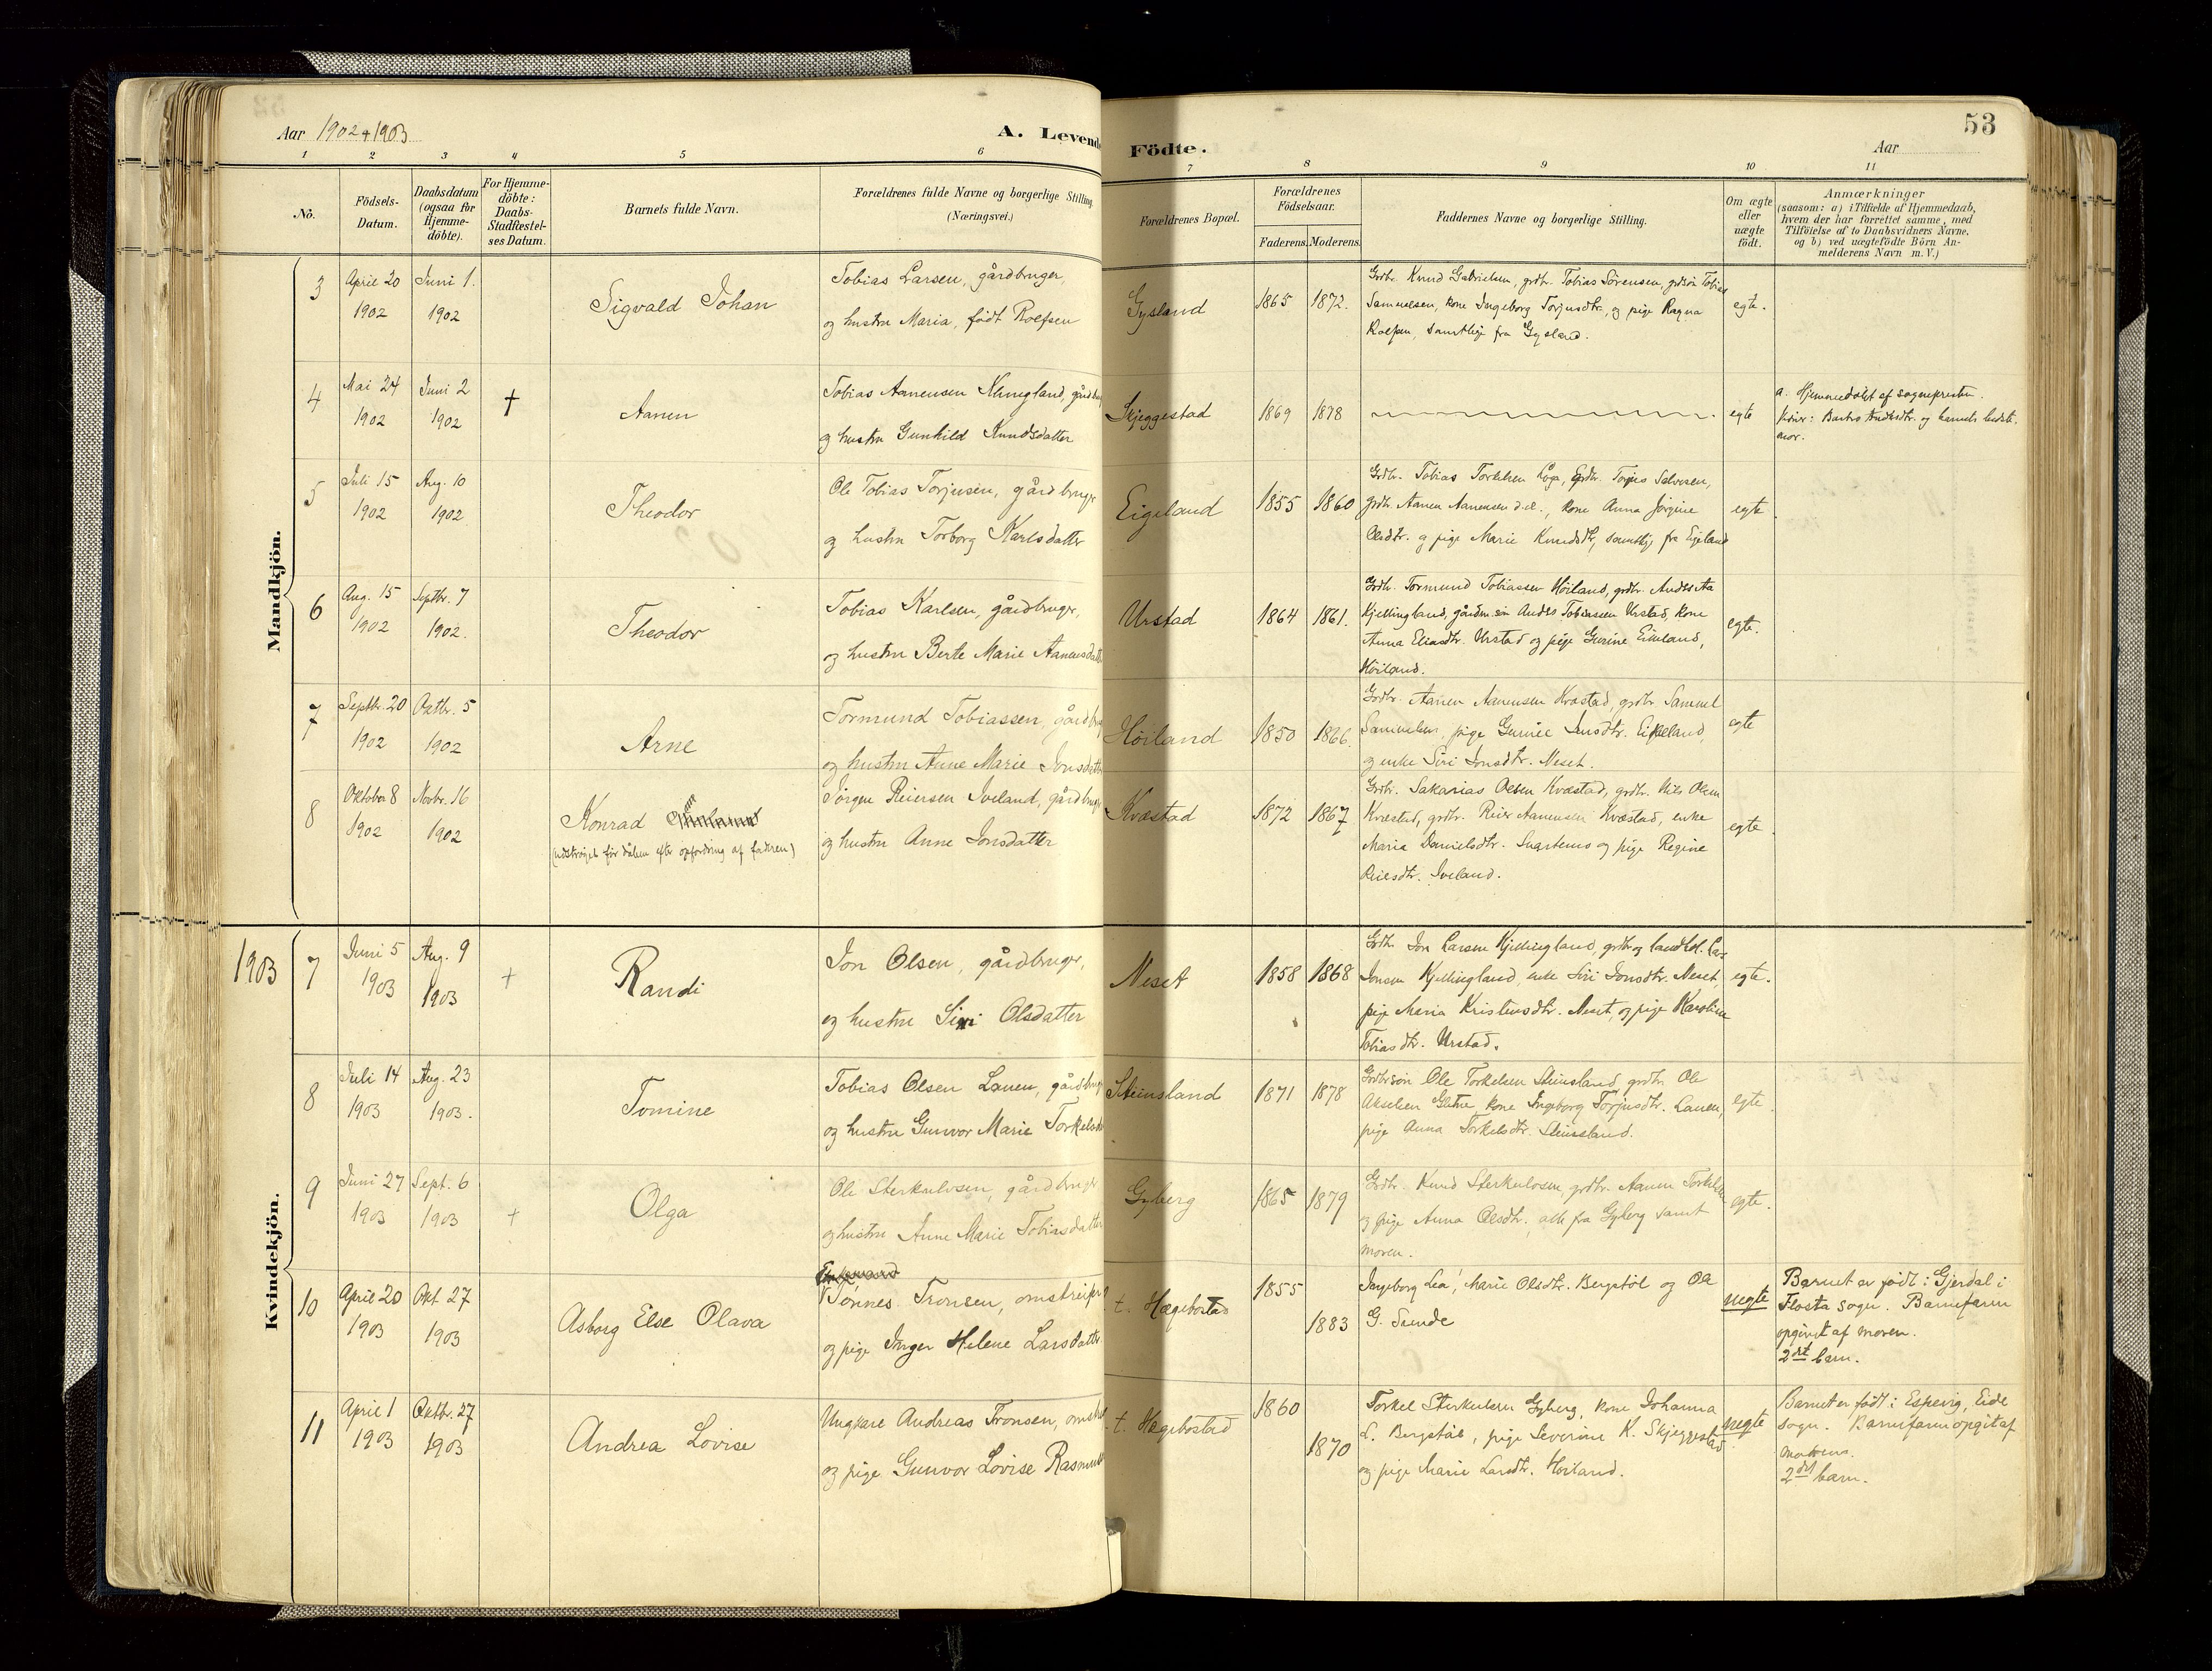 Aar 1902+1903
A. Levende
Födte.
53
Aar
1 2 3 4 5 6 7 8 9 10 11
No.
Födsels-Datum.
Daabsdatum (ogsaa for Hjemme-döbte).
For Hjemme-döbte: Daabs-Stadfæstel-ses Datum.
Barnets fulde Navn.
Forældrenes fulde Navne og borgerlige Stilling. (Næringsvei.)
Forældrenes Bopæl.
Forældrenes Födselsaar.
Faderens. Moderens.
Faddernes Navne og borgerlige Stilling.
Om ægte eller uægte födt.
Anmærkninger
(saasom: a) i Tilfælde af Hjemmedaab,
hvem der har forrettet samme, med
Tilföielse af to Daabsvidners Navne,
og b) ved uægtefödte Börn An-
melderens Navn m. V.)
Mandkjön.
3
April 20 1902
Juni 1. 1902
Sigvald Johan
Tobias Larsen, gårdbruger,
og hustru Maria, født Rolfsen
Gysland
1865 1872.
Grdbr. Knud Gabrielsen, grdbr. Tobias Sørensen, grdsøn Tobias
Samuelsen, kone Ingeborg Torjusdtr., og pige Ragna
Rolfsen, samtlige fra Gysland.
egte.
4
Mai 24 1902
Juni 2 1902
†
Aanen
Tobias Aanensen Klungland, gårdbru
og hustru Gunhild Knudsdatter
Skjeggestad
1869 1878
egte
a. Hjemmedøbt af sognepresten.
mor.
5
Juli 15 1902
Aug. 10 1902
Theodor
Ole Tobias Torjusen, gårdbruger
og hustru Torborg Karlsdatter
Eigeland
1855 1860
Grdbr. Tobias Torkelsen Låga, Grdbr. Torjus Salvesen,
grdbr. Aanen Aanensen d.e., kone Anna Jörgine
Olsdtr. og pige Marie Knudsdtr, samtlig fra Eigeland
egte.
6
Aug. 15 1902
Septbr. 7 1902.
Theodor
Tobias Karlsen, gårdbruger,
og hustru Berte Marie Aanensdatt
Urstad
1864 1861.
Grdbr. Tormund Tobiassen Höiland, grdbr. Anders Aa
Kjellingland, gårdm.søn Anders Tobiassen Urstad, kone
Anna Eliasdtr. Urstad og pige Gurine Eikeland,
Höiland.
egte.
7
Septbr. 20 1902
Oktbr. 5 1902
Arne
Tormund Tobiassen, gårdbru
og hustru Anne Marie Jonsdatt
Höiland
1850 1866.
Grdbr. Aanen Aanensen Kvæstad, grdbr. Samuel
Samuelsen, pige Gurine Jensdtr. Eikeland,
og enke Siri Jonsdtr. Neset.
egte
8
Oktober 8 1902
Novbr. 16 1902
Konrad
(udstrøget før dåben efter opfordring af faderen)
Jörgen Reiersen Iveland, gårdbruge
og hustru Anne Jonsdatter
Kvæstad
1872 1867
Grdbr. Sakarias Olsen Kvæstad, grdbr. Nils Olsen
Kvæstad, grdbr. Reier Aanensen Kvæstad, enke
Maria Danielsdtr. Snartemo og pige Regine
Reiersdtr. Iveland.
egte.
Kvindekjön.
1903
7
Juni 5 1903
Aug. 9 1903
†
Randi
Jon Olsen, gårdbruger,
og hustru Siri Olsdatter
Neset
1858 1868
Grdbr. Jon Larsen Kjellingland, grdbr og landhdl. Lars
Jonsen Kjellingland, enke Siri Jonsdtr. Neset,
pige Maria Kristensdtr. Neset, og pige Karoline
Tobiasdtr. Urstad.
egte.
8
Juli 14 1903
Aug. 23 1903.
Tomine
Tobias Olsen Lauen, gårdbrug
og hustru Gunvor Marie Torkelsda
Steinsland
1871 1878
Grdbrsøn Ole Torkelsen Steinsland, grdbr. Ole
Akselsen Gletne, kone Ingeborg Torjusdtr. Lauen,
pige Anna Torkelsdtr. Steinsland.
egte.
9
Juni 27 1903
Sept. 6 1903
†
Olga
Ole Sterkulvsen, gårdbruge
og hustru Anne Marie Tobiasdatter
Gyberg
1865 1879
Grdbr. Knud Sterkulvsen, grdbr. Aanen Torkelsen
og pige Anna Olsdtr., alle fra Gyberg samt
moren.
egte.
10
April 20 1903
Okt. 27 1903
Asborg Else Olava
Tönnes Tronsen, omstreifer
og pige Inger Helene Larsdattr.
t. Hægebostad
1855
1883
Ingeborg Lea, Marie Olsdtr. Bergstöl og Ole
G. Sunde
uegte
Barnet er født i Gjerdal i
Flosta sogn. Barnefaren
opgivet af moren.
2det barn.
11
April 1 1903
Oktbr. 27 1903
Andrea Lovise
Ungkarl Andreas Tronsen, omstrei
og pige Gunvor Lovise Rasmusd
t. Hægebostad
1860
1870
Torkel Sterkulvsen Gyberg, kone Johanna
L. Bergstöl, pige Severine K. Skjeggestad
og pige Marie Larsdtr. Höiland.
uegte
Barnet er født i Espevig, Eide
sogn. Barnefaren opgit af
moderen.
2det barn.